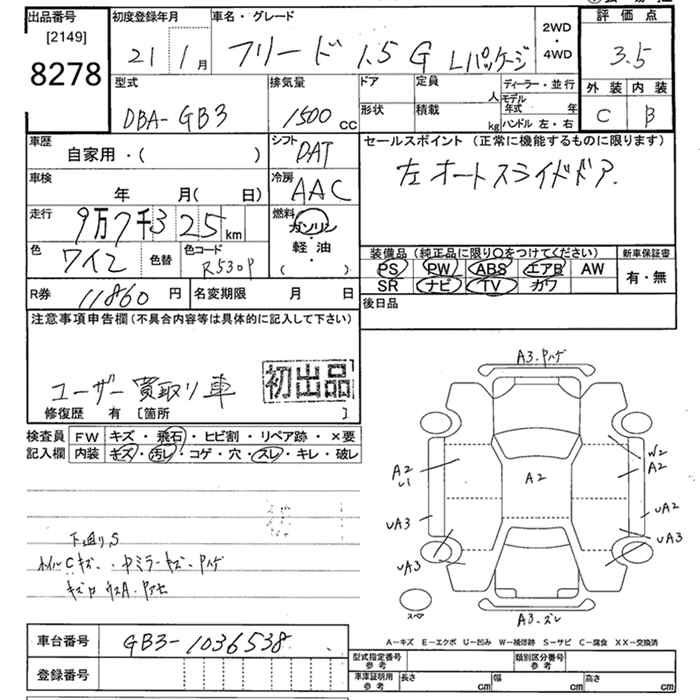 出品番号 初度登録年月 車名・グレード 2WD・4WD 評価点
[2149]
8278
21 1月 フリード 1.5 G Lパッケージ 3.5
外装 内装
C B
型式 排気量 ドア 定員 人 ディーラー・並行
DBA-GB3 1500 cc 形状 積載 kg モデル年式 年
ハンドル 左・右
車歴 シフト セールスポイント (正常に機能するものに限ります)
自家用・( ) DAT
左オートスライドドア.
車検 冷房
年 月( 日) AAC
走行 燃料
9万7千325 km ガソリン
色 色替 色コード 軽・油
ワイン R530P ・( )
装備品 (純正品に限り○をつけてください) 新車保証書
PS PW ABS エアB AW 有・無
SR ナビ TV カワ
R券 11860 円 名変期限 月 日
後日品
注意事項申告欄 (不具合内容等は具体的に記入して下さい)
ユーザー買取り車 初出品
修復歴 有 [箇所 ]
検査員 FW キズ・飛石・ヒビ割・リペア跡・×要
記入欄 内装 キズ・汚レ・コゲ・穴・スレ・キレ・破レ
A3.ハゲ
W2
A2
A2
A2
U1
UA2
UA3
UA3
UA3
スペア
A3.ズレ
下廻りS
ホイルCキズ.
A-キズ E-エクボ U-凹み W-補修跡 S-サビ C-腐食 XX-交換済
車台番号 GB3-1036538
型式指定番号 参考 類別区分番号 参考
登録番号
車庫証明用 参考 長さ cm 幅 cm 高さ cm